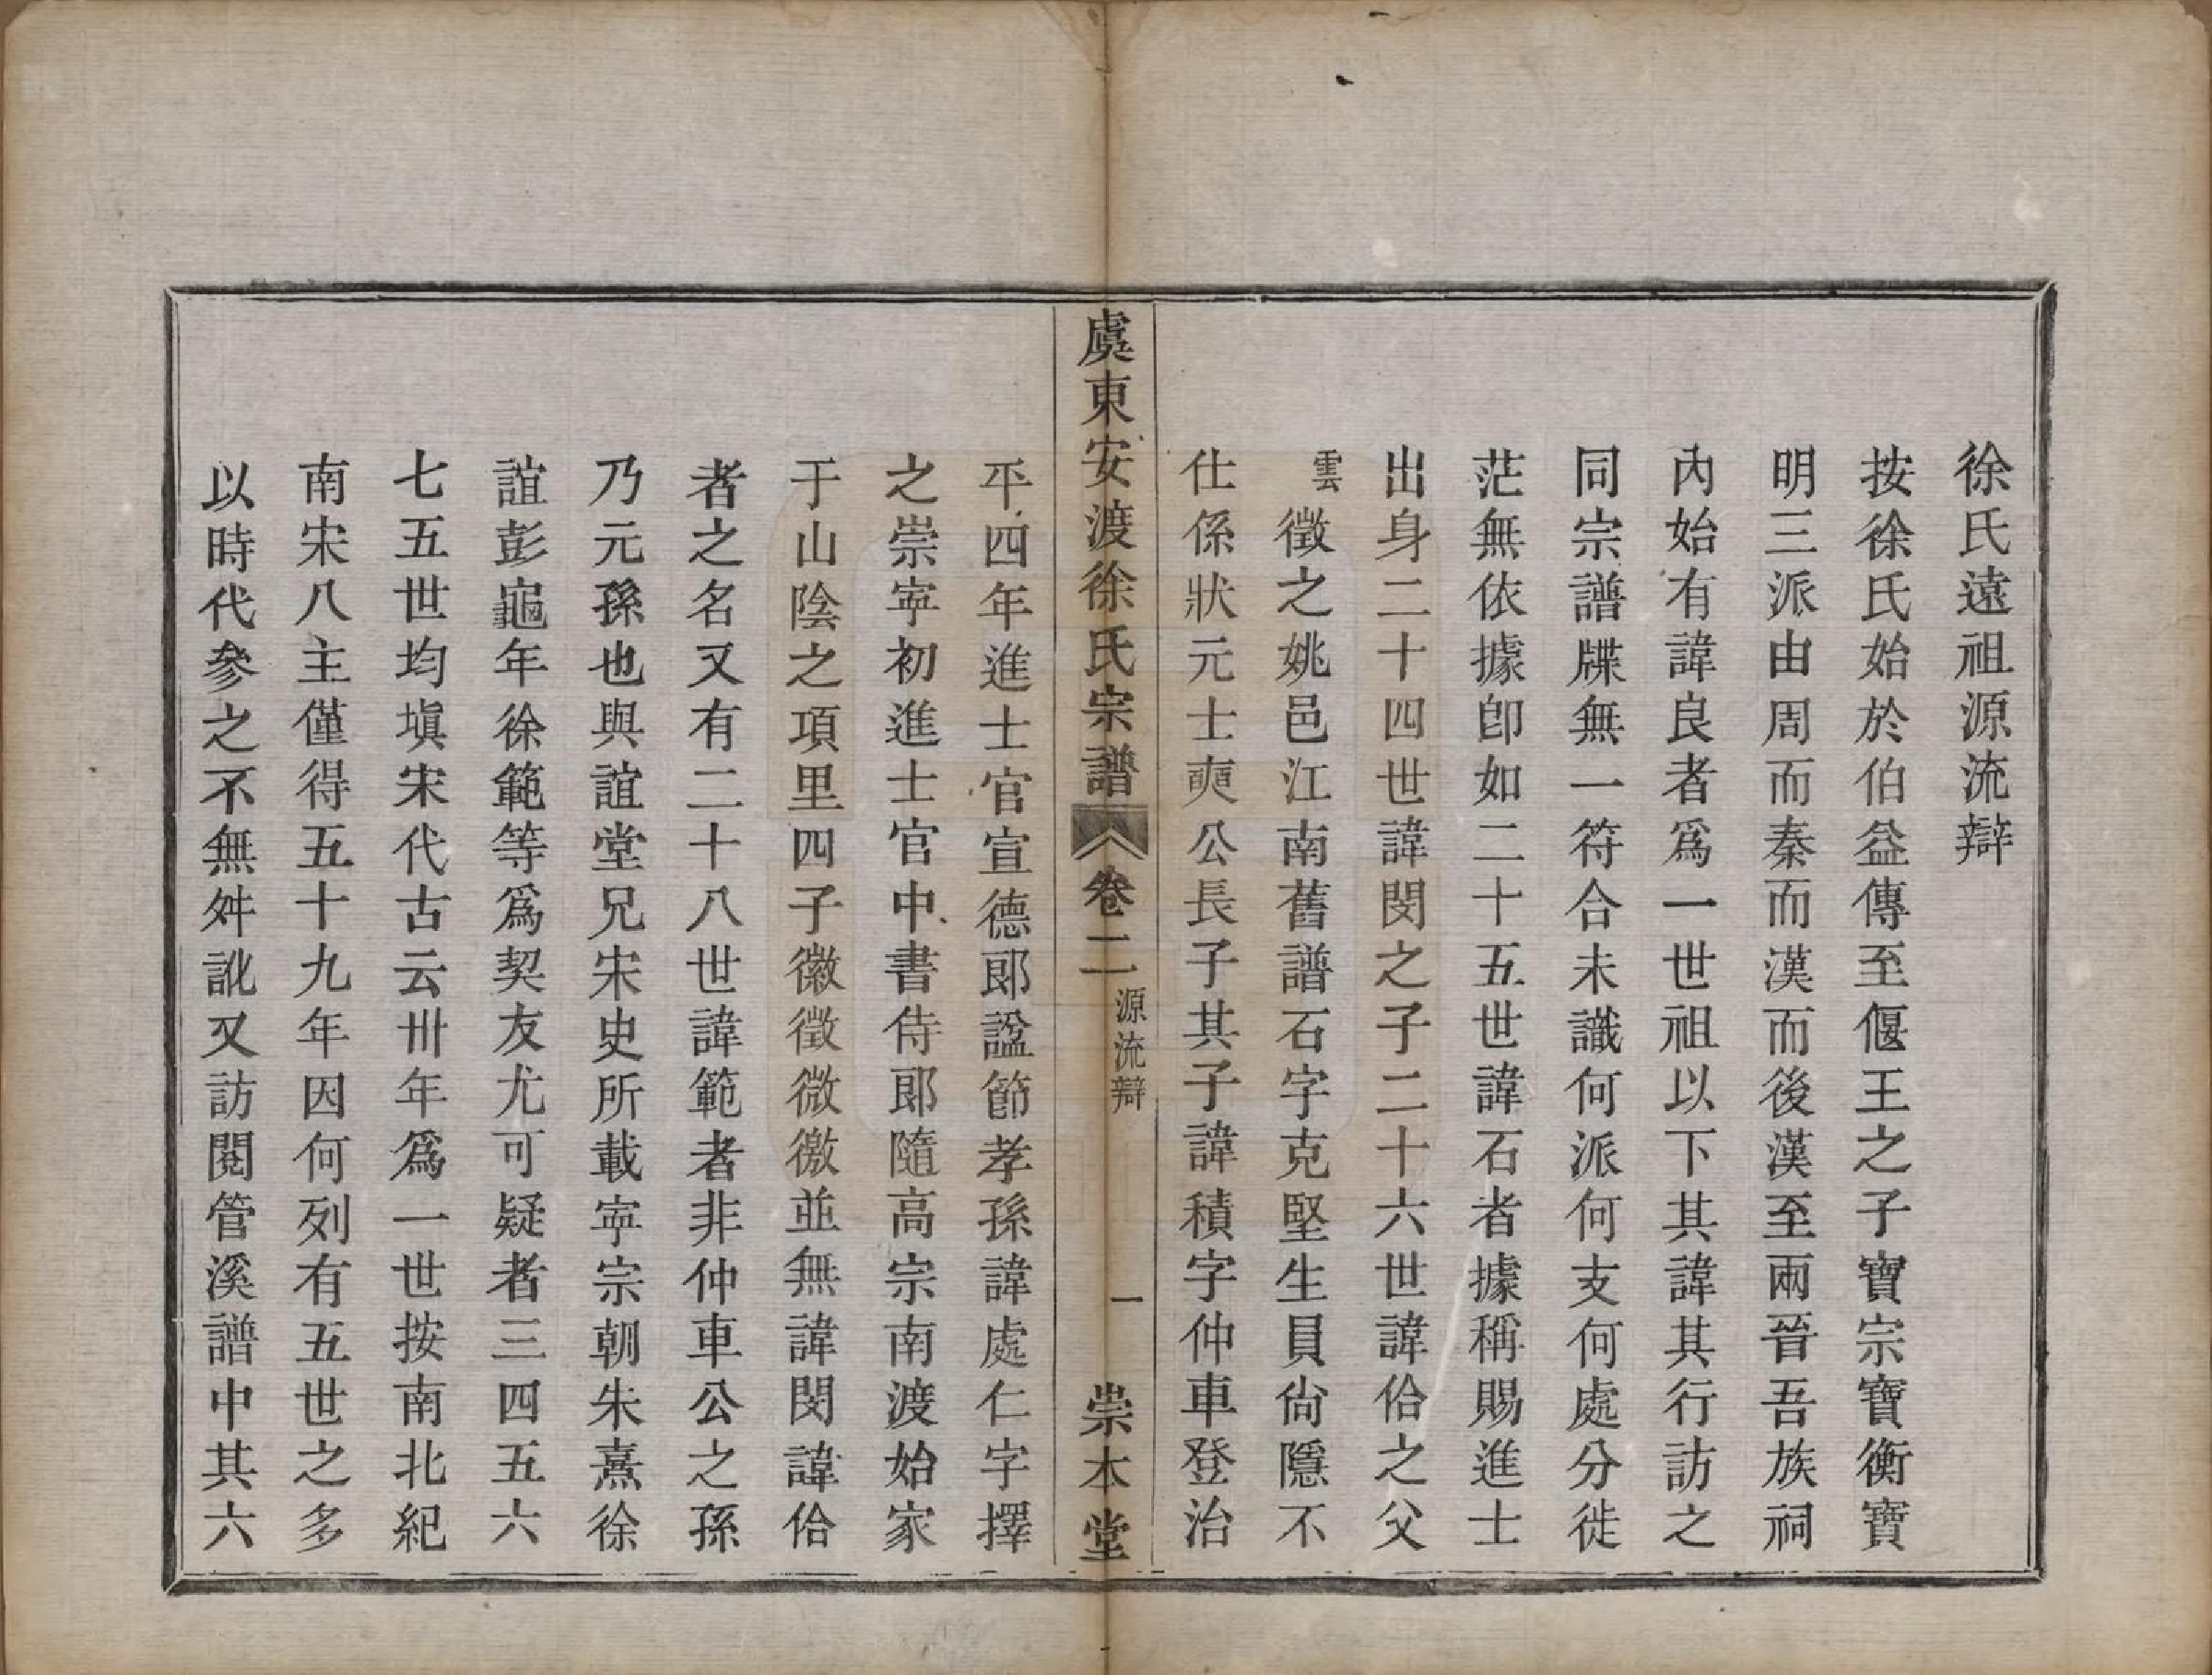 徐氏遠祖源流辯
按徐氏始於伯益傳至偃王之子寶宗寶衡寶
明三派由周而秦而漢而後漢至兩晉吾族祠
內始有諱良者爲一世祖以下其諱其行訪之
同宗譜牒無一符合未識何派何支何處分徙
茫無依據卽如二十五世諱石者據稱賜進士
出身二十四世諱閔之子二十六世諱佮之父
雲徵之姚邑江南舊譜石字克堅生員尙隱不
仕係狀元士奭公長子其子諱積字仲車登治
虞東安渡徐氏宗譜
卷二
源流辯
一
崇本堂
平四年進士官宣德郞謚節孝孫諱處仁字擇
之崇寧初進士官中書侍郞隨高宗南渡始家
于山陰之項里四子徽徵微徼並無諱閔諱佮
者之名又有二十八世諱範者非仲車公之孫
乃元孫也與誼堂兄宋史所載寧宗朝朱熹徐
誼彭龜年徐範等爲契友尤可疑者三四五六
七五世均塡宋代古云卅年爲一世按南北紀
南宋八主僅得五十九年因何列有五世之多
以時代參之不無舛訛又訪閱管溪譜中其六